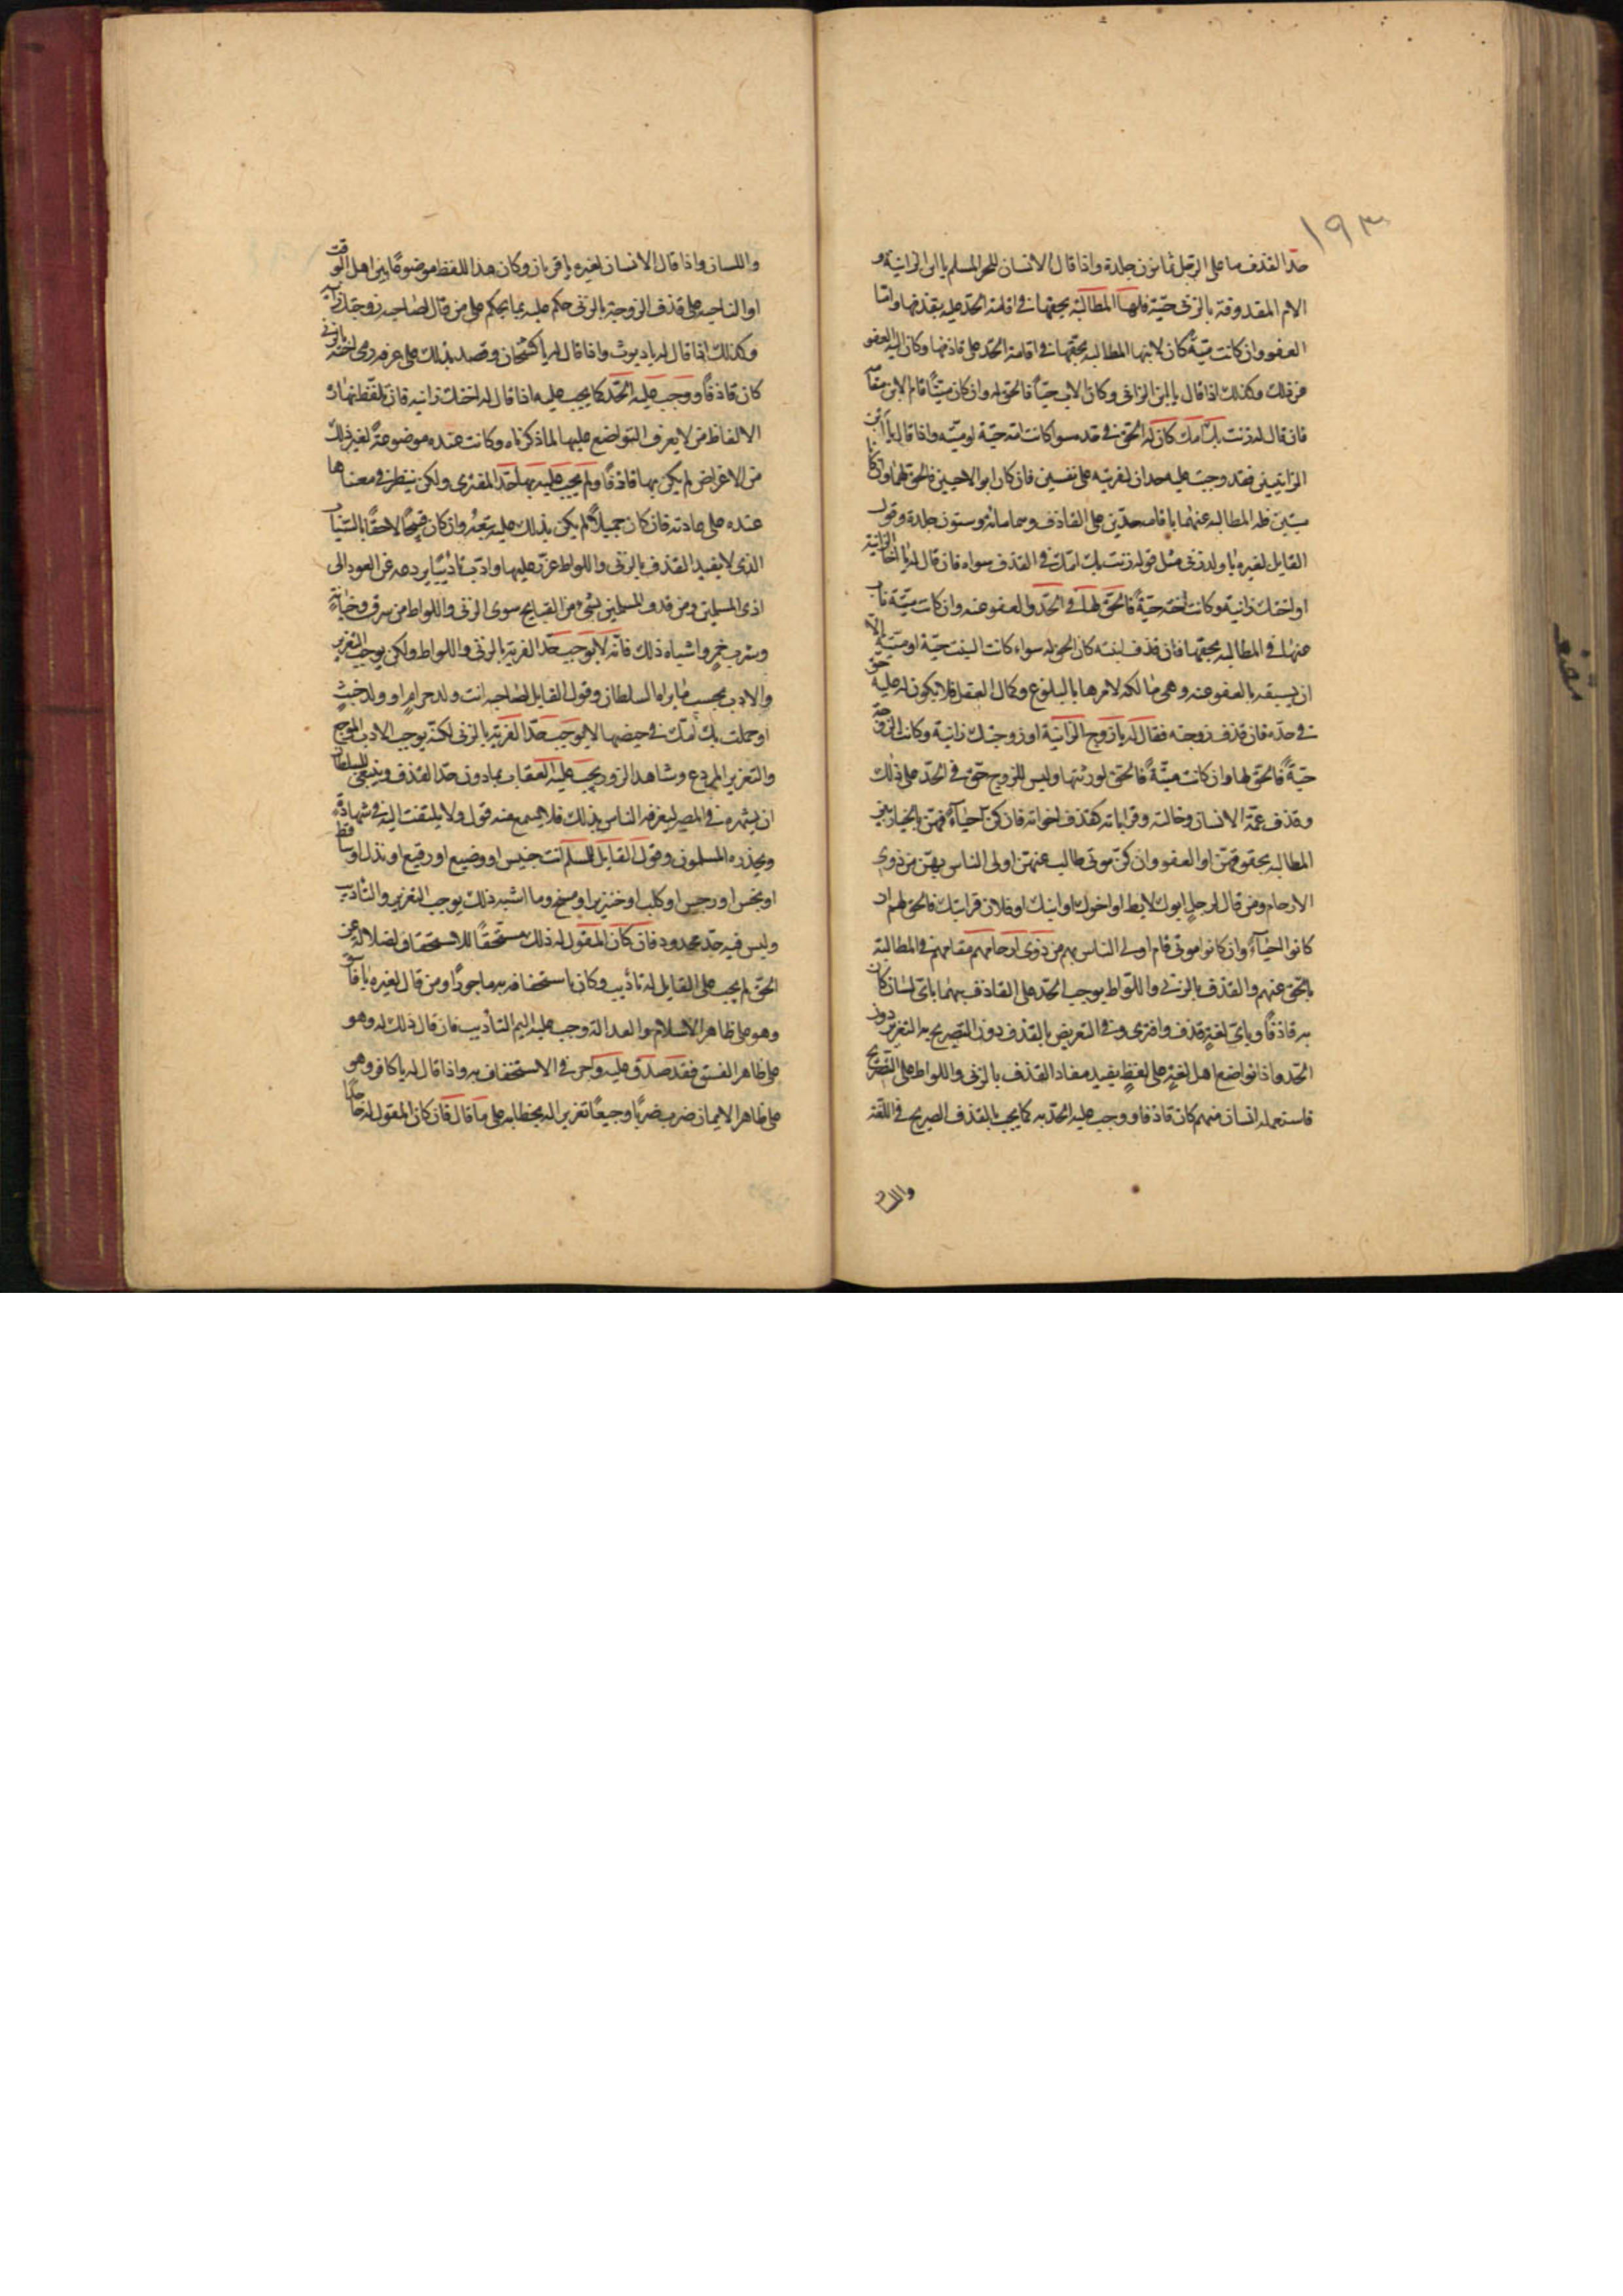 ١٩٣
حدّ القذف ما على الرجل ثمانون جلدة واذا قال الانسان للحر المسلم يا ابن الزانية و
الام المقذوفة بالزنى حيّة فلها المطالبة بحقها فى اقامة الحدّ عليه بقذفها وامّا
العفو وان كانت ميّتة كان لابنها المطالبة بحقها فى اقامة الحدّ على قاذفها وكان اليه العفو
عن ذلك وكذلك اذا قال يا ابن الزانى وكان الاب حيّاً فالحق له وان كان ميّتاً قام الابن مقامه
فان قال له زنت بك امك كان له الحق فى قذفه سوا كانت امه حيّة او ميّته واذا قال يا ابن
الزانيين فقد وجب عليه حدان لفريته على نفسين فان كان ابوا الاحيين فالحق لهما وان كانا
ميّتين فله المطالبه عنهما باقامه حدّين على القاذف وهما مائة وستون جلدة وقول
القايل لغيره يا ولد زنى مثل قوله زنت بك امك فى القذف سواء فان قال له يا اخا الزانية
او اختك زانية وكانت اخته حيّةً فالحق لها فى الحدّ والعفو عنه وان كانت ميّتة ناب
عنها فى المطالبه بحقها فان قذف ابنته كان الحق له سواء كانت البنت حيّة او ميّتة الّا
ان يسبقه بالعفو عنه وهى مالكه لامرها بالبلوغ وكمال العقل فلا يكون له عليه حق
فى حدّه فان قذف زوجته فقال له يا زوج الزانية او زوجتك زانية وكانت الزوجة
حيّةً فالحق لها وان كانت ميتّةً فالحق لورثتها وليس للزوج حق فى الحدّ على ذلك
وقذف عمّة الانسان وخالته وقراباته كقذف اخواته فان كنّ احياءً فهنّ بالخيار بين
المطالبه بحقوقهنّ او العفو وان كنّ موتى طالب عنهنّ اولى الناس بهنّ من ذوى
الارحام ومن قال لرجل ابوك لايط او اخوك او ابنك او فلان قرابتك فالحق لهم اذ
كانوا احياءً وان كانوا موتى قام اولى الناس بهم من ذوى ارحامهم مقامهم فى المطالبة
بالحق عنهم والقذف بالزنى واللواط يوجب الحدّ على القاذف بهما باىّ لسان كان
به قاذفاً وباىّ لغةٍ قذف وافترى وفى التعريض بالقذف دون التصريح به التعزير دون
الحدّ واذا تواضع اهل لغةٍ على لفظٍ يفيد مفاد القذف بالزنى واللواط على التصريح
فاستعمله انسان منهم كان قاذفا ووجب عليه الحدّ به كما يجب بالقذف الصريح فى اللغة
واللسان
واللسان واذا قال الانسان لغيره يا قرنان وكان هذا اللفظ موضوعًا بين اهل الوقت
او الناحيه على قذف الزوجة بالزنى حكم عليه بما يحكم على من قال لصاحبه زوجتك زانية
وكذلك اذا قال له يا ديوث واذا قال له يا كشخان وقصد بذلك على عرفه رمى اخته بالزنى
كان قاذفاً ووجب عليه الحدّ كما يجب عليه اذا قال له اختك زانيه فان تلفظ بهذه
الالفاظ من لا يعرف التواضع عليها لما ذكرناه وكانت عنده موضوعةً لغير ذلك
من الاغراض لم يكن بها قاذفًا ولم يجب عليه بها حدّ المفترى ولكن ينظر فى معناها
عنده على عادته فان كان جميلًا لم يكن بذلك عليه تبعةٌ وان كان قبيحًا لاحقًا بالسّباب
الذى لا يفيد القذف بالزنى واللواط عزّر عليها وادّب تأديبًا يردعه عن العود الى
اذى المسلمين ومن قذف المسلمين بشىء من القبايح سوى الزنى واللواط من سرق وخيانةٍ
وشرب خمرٍ واشباه ذلك فانّه لا يوجب حدّ الفرية بالزنى واللواط ولكن يوجب التعزير
والادب بحسب ما يراه السلطان وقول القايل لصاحبه انت ولد حرامٍ او ولد خبثٍ
او حملت بك امّك فى حيضها لا يوجب حدّ الفرية بالزنى لكنّه يوجب الادب الموجع
والتعزير المردع وشاهد الزور يجب عليه العقاب بما دون حدّ القذف وينبغى للسلطان
ان يشهره فى المصر ليعرفه الناس بذلك فلا يسمع عنه قول ولا يلتفت اليه فى شهادةٍ
ويحذره المسلمون وقول القايل للمسلم انت خسيس او وضيع او رقيع او نذل او ساقط
او نجس او رجس او كلب او خنزير او مسخ وما اشبه ذلك يوجب التعزير والتأديب
وليس فيه حدّ محدود فان كان المقول له ذلك مستحقًا للاستخفاف لضلاله عن
الحق لم يجب على القايل له تأديب وكان باستخفافه به ماجورًا ومن قال لغيره يا فاسق
وهو على ظاهر الاسلام والعدالة وجب عليه اليم التأديب فان قال ذلك له وهو
على ظاهر الفسق فقد صدق عليه واجر فى الاستخفاف به واذا قال له يا كافر وهو
على ظاهر الايمان ضرب ضربًا وجيعًا تعزيرا له بخطابه على ما قال فان كان المقول له جاحدًا
مقنعه